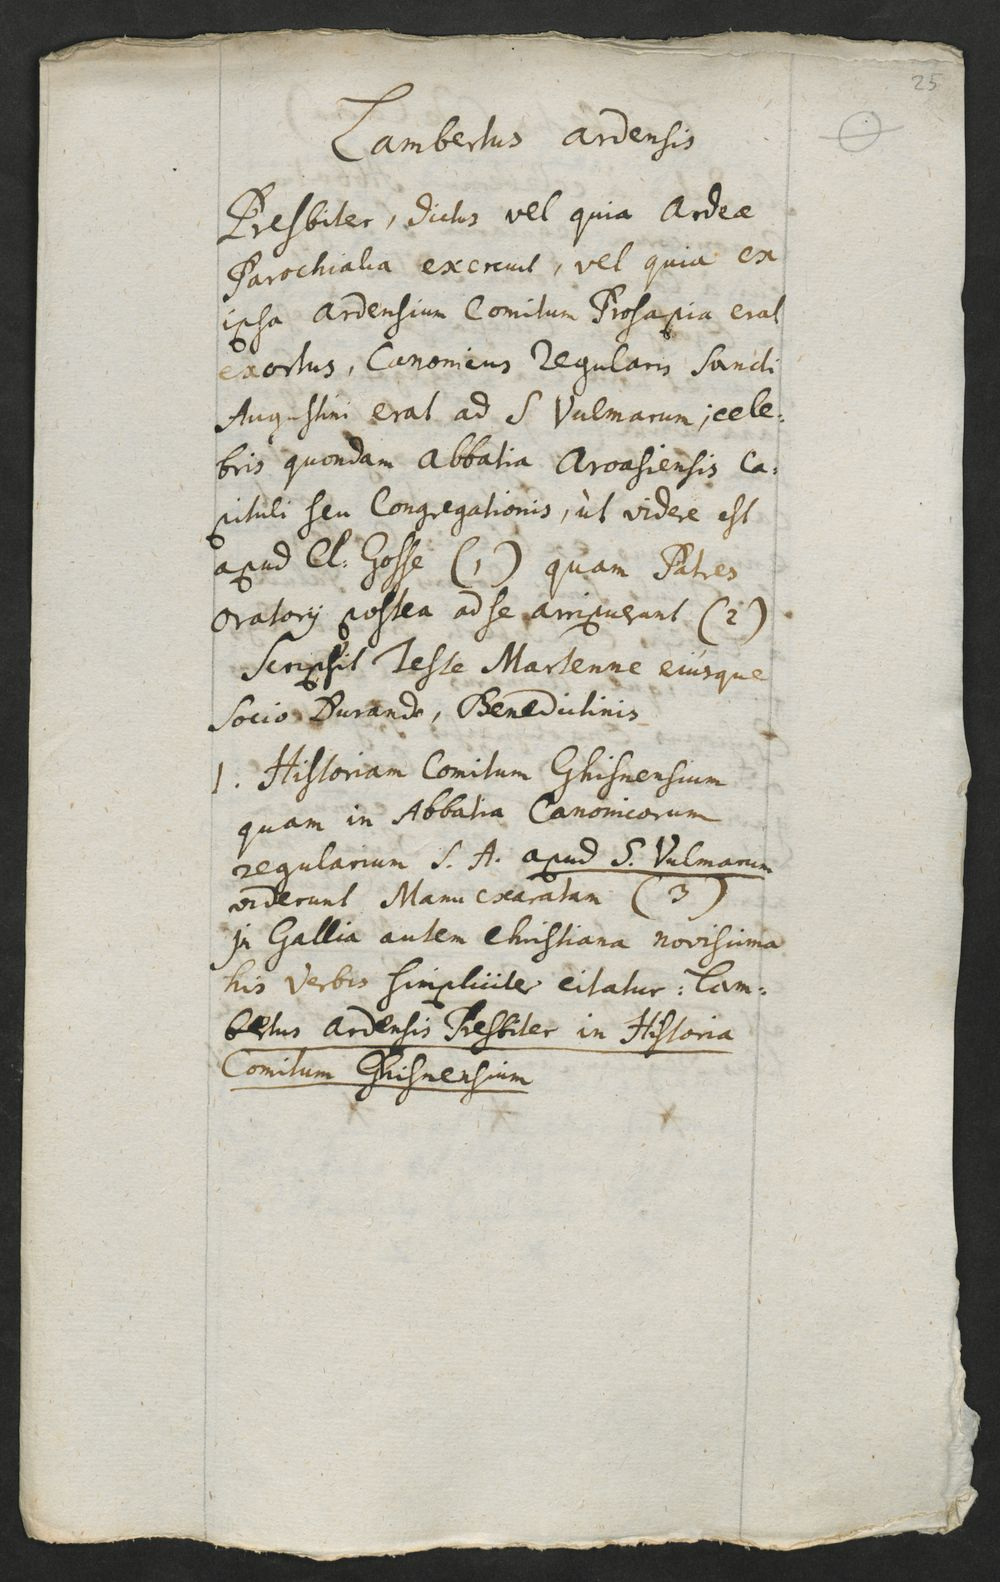 25
Lambertus ardensis
Presbiter, dictus vel quia Ardeæ
Parochialia excrevit, vel quia ex
ipsa Ardensium Comitum Prosapia erat
exortus, Canonicus Regularis Sancti
Augustini erat ad S Vulmarum; cele:
bris quondam Abbatia Aroasiensis Ca:
pituli seu Congregationis, ùt videre est
apud Cl: Gosse (1) quam Patres
Oratorij postea ad se arripuerunt (2)
Scripsit Teste Martenne eiùsque
Socio Durando, Benedictinis
1. Historiam Comitum Ghisnensium
quam in Abbatia Canonicorum
regularium S. A. apud S. Vulmarum
viderunt Manu exaratam (3)
jn Gallia autem Christiana novissima
his verbis simpliciter citatur: Lam:
bertus Ardensis Presbiter in Historia
Comitum Ghisnensium